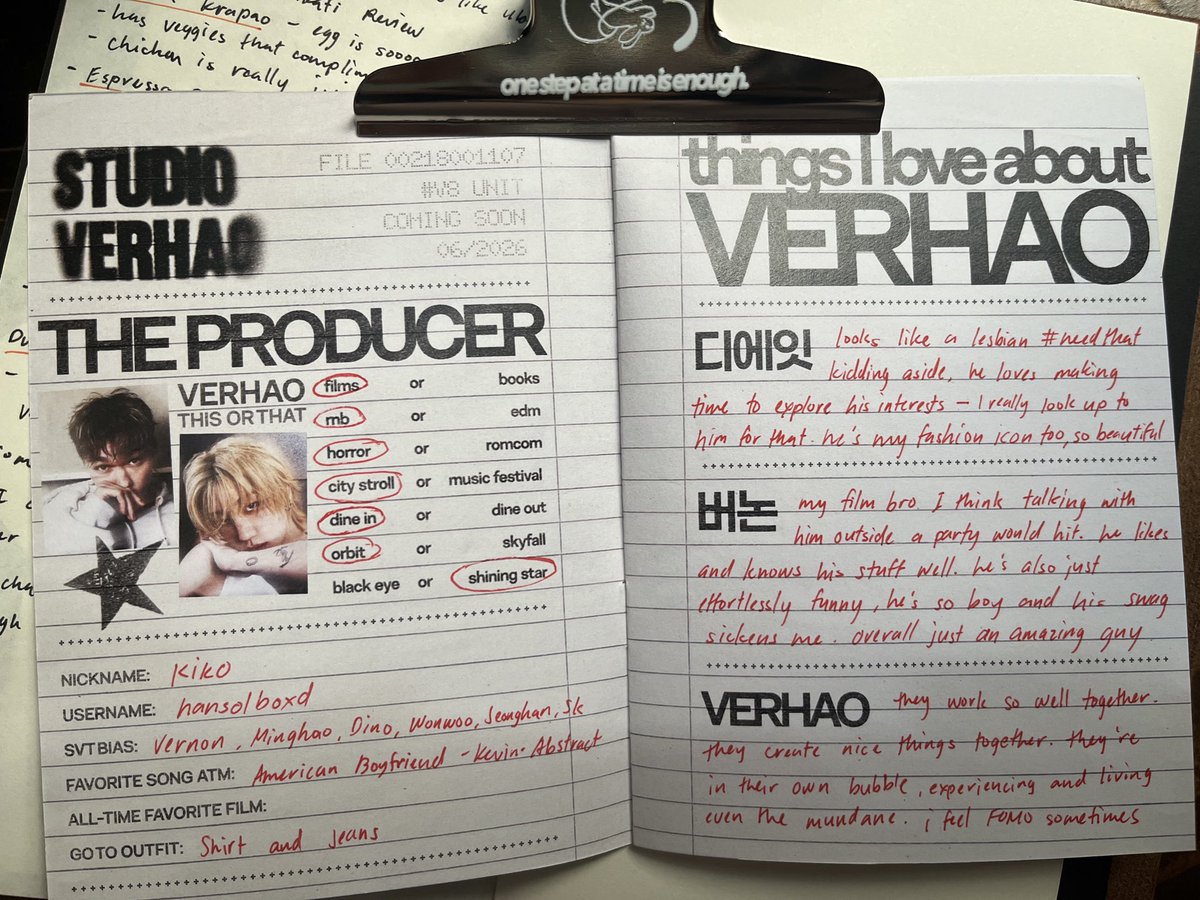 Review
Krapao - egg is soooo
- has veggies that complim
- Chicken is really
- Espresso
one step at a time is enough.
STUDIO
VERHAO
FILE 00218001107
#V8 UNIT
COMING SOON
06/2026
THE PRODUCER
VERHAO
THIS OR THAT
films or books
rnb or edm
horror or romcom
city stroll or music festival
dine in or dine out
orbit or skyfall
black eye or shining star
NICKNAME: Kiko
USERNAME: hansolboxd
SVT BIAS: Vernon, Minghao, Dino, Wonwoo, Jeonghan, Sk
FAVORITE SONG ATM: American Boyfriend - Kevin Abstract
ALL-TIME FAVORITE FILM:
GO TO OUTFIT: Shirt and Jeans
things I love about
VERHAO
디에잇 looks like a lesbian #needthat
kidding aside, he loves making
time to explore his interests - I really look up to
him for that. he's my fashion icon too, so beautiful
버논 my film bro. I think talking with
him outside a party would hit. he likes
and knows his stuff well. he's also just
effortlessly funny, he's so boy and his swag
sickens me. overall just an amazing guy.
VERHAO they work so well together.
they create nice things together. they're
in their own bubble, experiencing and living
even the mundane. i feel FOMO sometimes